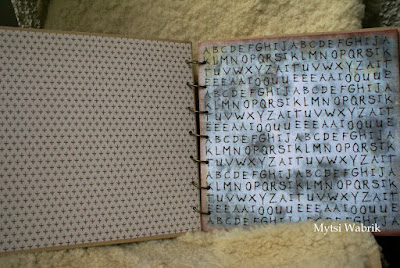 ABCDEFGHIJABCDEFGHIJA
KLMNOPQRSIKLMNOPQRSIK
TUVWXYZAITUVWXYZAIT
EEEAAIOOUUEEEAAIOOUUE
ABCDEFGHIJABCDEFGHIJ
KLMNOPQRSIKLMNOPQRSIK
TUVWXYZAITUVWXYZAIT
EEEAAIOOUUEEEAAIOOUUE
ABCDEFGHIJABCDEFGHIJ
KLMNOPQRSIKLMNOPQRSIK
TUVWXYZAITUVWXYZAIT
EEEAAIOOUUEEEAAIOOUUE
ABCDEFGHIJABCDEFGHIJ
KLMNOPQRSIKLMNOPQRSIK
TUVWXYZAITUVWXYZAIT
EEEAAIOOUUEEEAAIOOUUE
Mytsi Wabrik